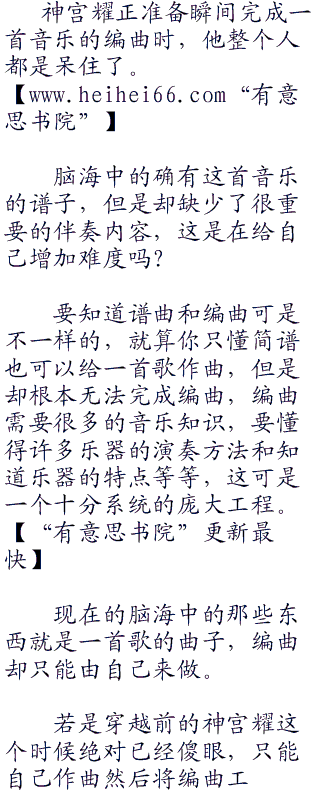 神宫耀正准备瞬间完成一
首音乐的编曲时，他整个人
都是呆住了。
【www.heihei66.com“有意
思书院”】
脑海中的确有这首音乐
的谱子，但是却缺少了很重
要的伴奏内容，这是在给自
己增加难度吗？
要知道谱曲和编曲可是
不一样的，就算你只懂简谱
也可以给一首歌作曲，但是
却根本无法完成编曲，编曲
需要很多的音乐知识，要懂
得许多乐器的演奏方法和知
道乐器的特点等等，这可是
一个十分系统的庞大工程。
【“有意思书院”更新最
快】
现在的脑海中的那些东
西就是一首歌的曲子，编曲
却只能由自己来做。
若是穿越前的神宫耀这
个时候绝对已经傻眼，只能
自己作曲然后将编曲工